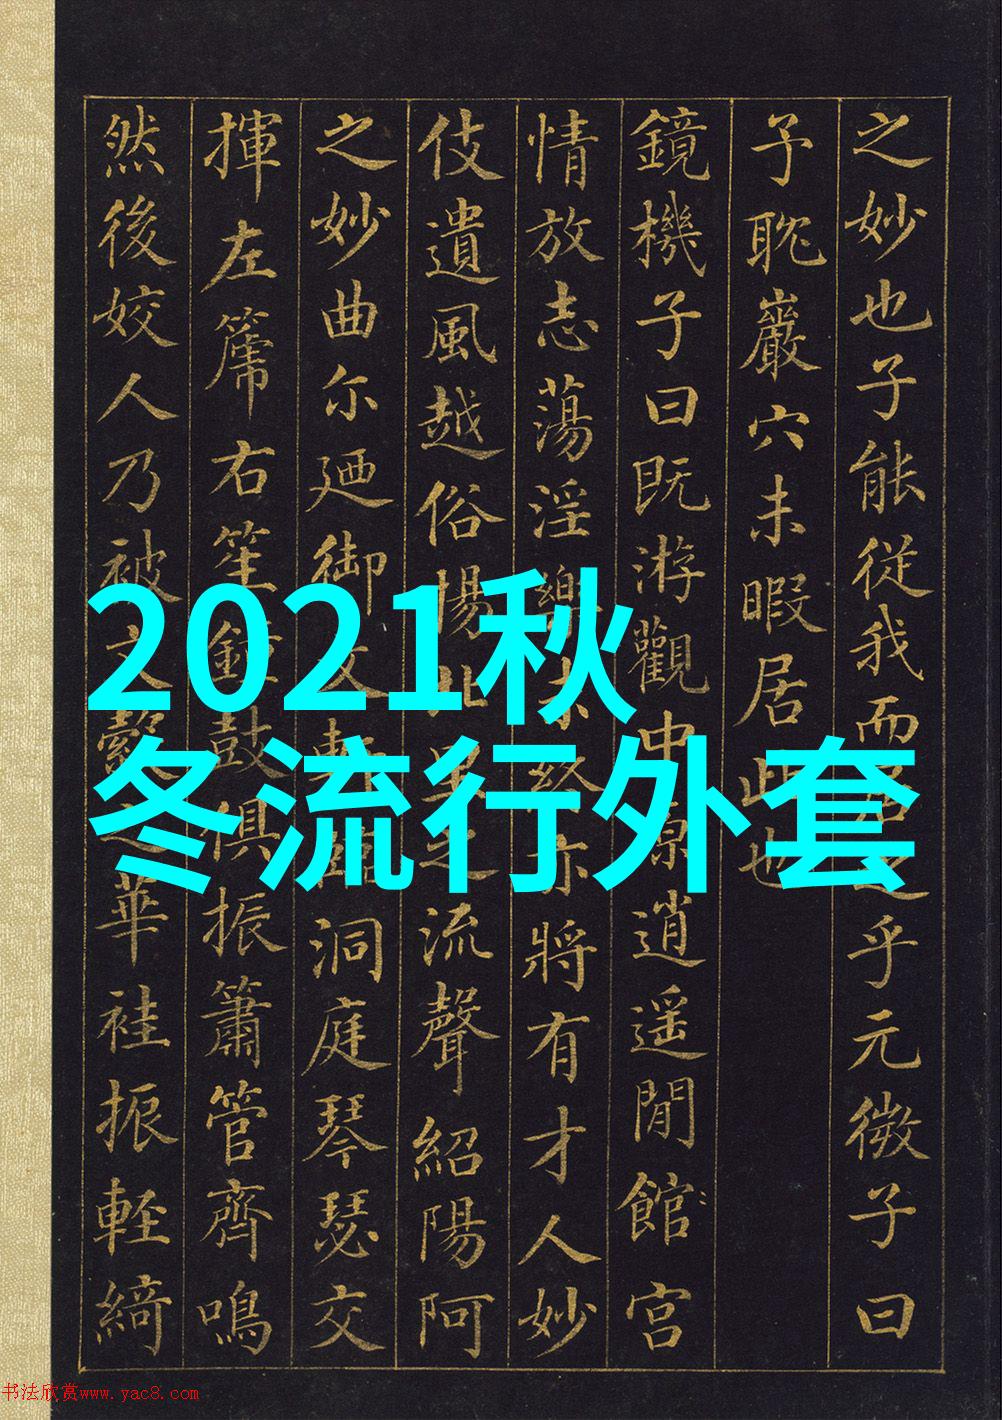 之妙也子能從我而居之乎元微子曰
予耽巖穴未暇居此也
鏡機子曰既游觀中原逍遥閒館宮
情放志蕩淫樂未終亦將有才人妙
伎遺風越俗揚北里之流聲紹陽阿
之妙曲尔廼御文軒臨洞庭琴瑟交
揮左篪右笙鐘鼓俱振簫管齊鳴
然後姣人乃被文縠之華袿振軽綺
2021秋
冬流行外套
书法欣赏www.yac8.com